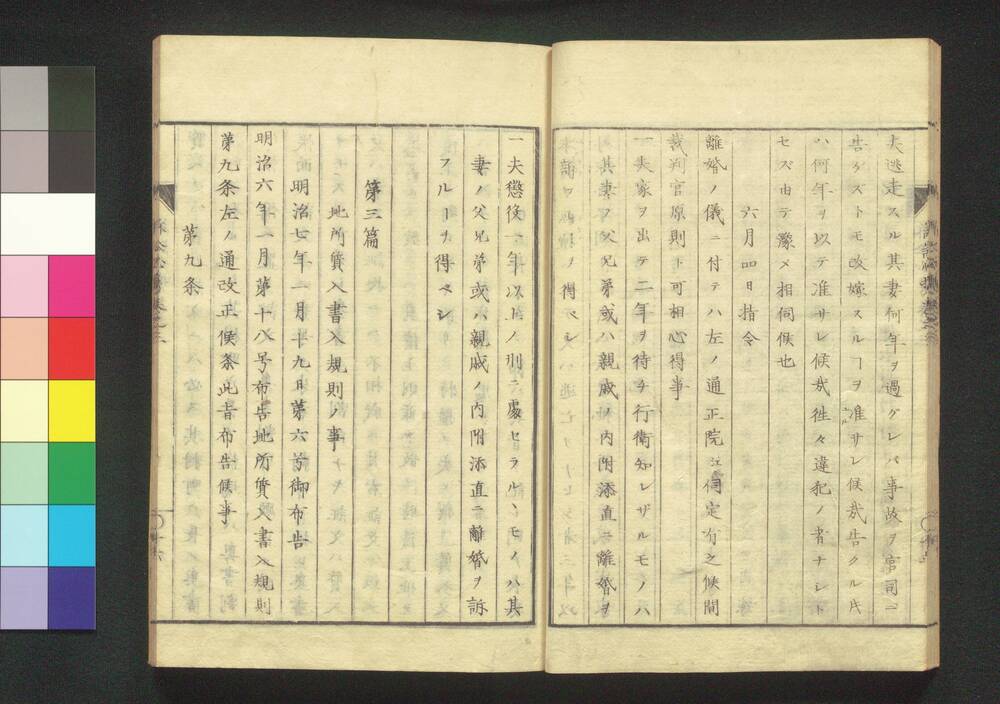 夫逃走スル其妻何年ヲ過グレバ事故ヲ官司ニ
告グズトモ改嫁スルヿヲ准サレ候哉告クル氏
ハ何年ヲ以テ准サレ候哉徃々違犯ノ者ナシト
セズ由テ豫メ相伺候也
六月四日指令
離婚ノ儀ニ付テハ左ノ通正院江伺定有之候間
裁判官原則ト可相心得事
一夫家ヲ出テ二年ヲ待チ行衛知レザルモノハ
其妻ノ父兄弟或ハ親戚ノ内附添直ニ離婚ヲ
訴フルヿヲ得ベシ
一夫懲役一年以上ノ刑ニ處セラルヽモノハ其
妻ノ父兄弟或ハ親戚ノ内附添直ニ離婚ヲ訴
フルーヲ得ベシ
第三篇
地所質入書入規則ノ事
明治七年一月十九日第六号御布告
明治六年一月第十八号布告地所質入書入規則
第九条左ノ通改正候条此旨布告候事
第九条